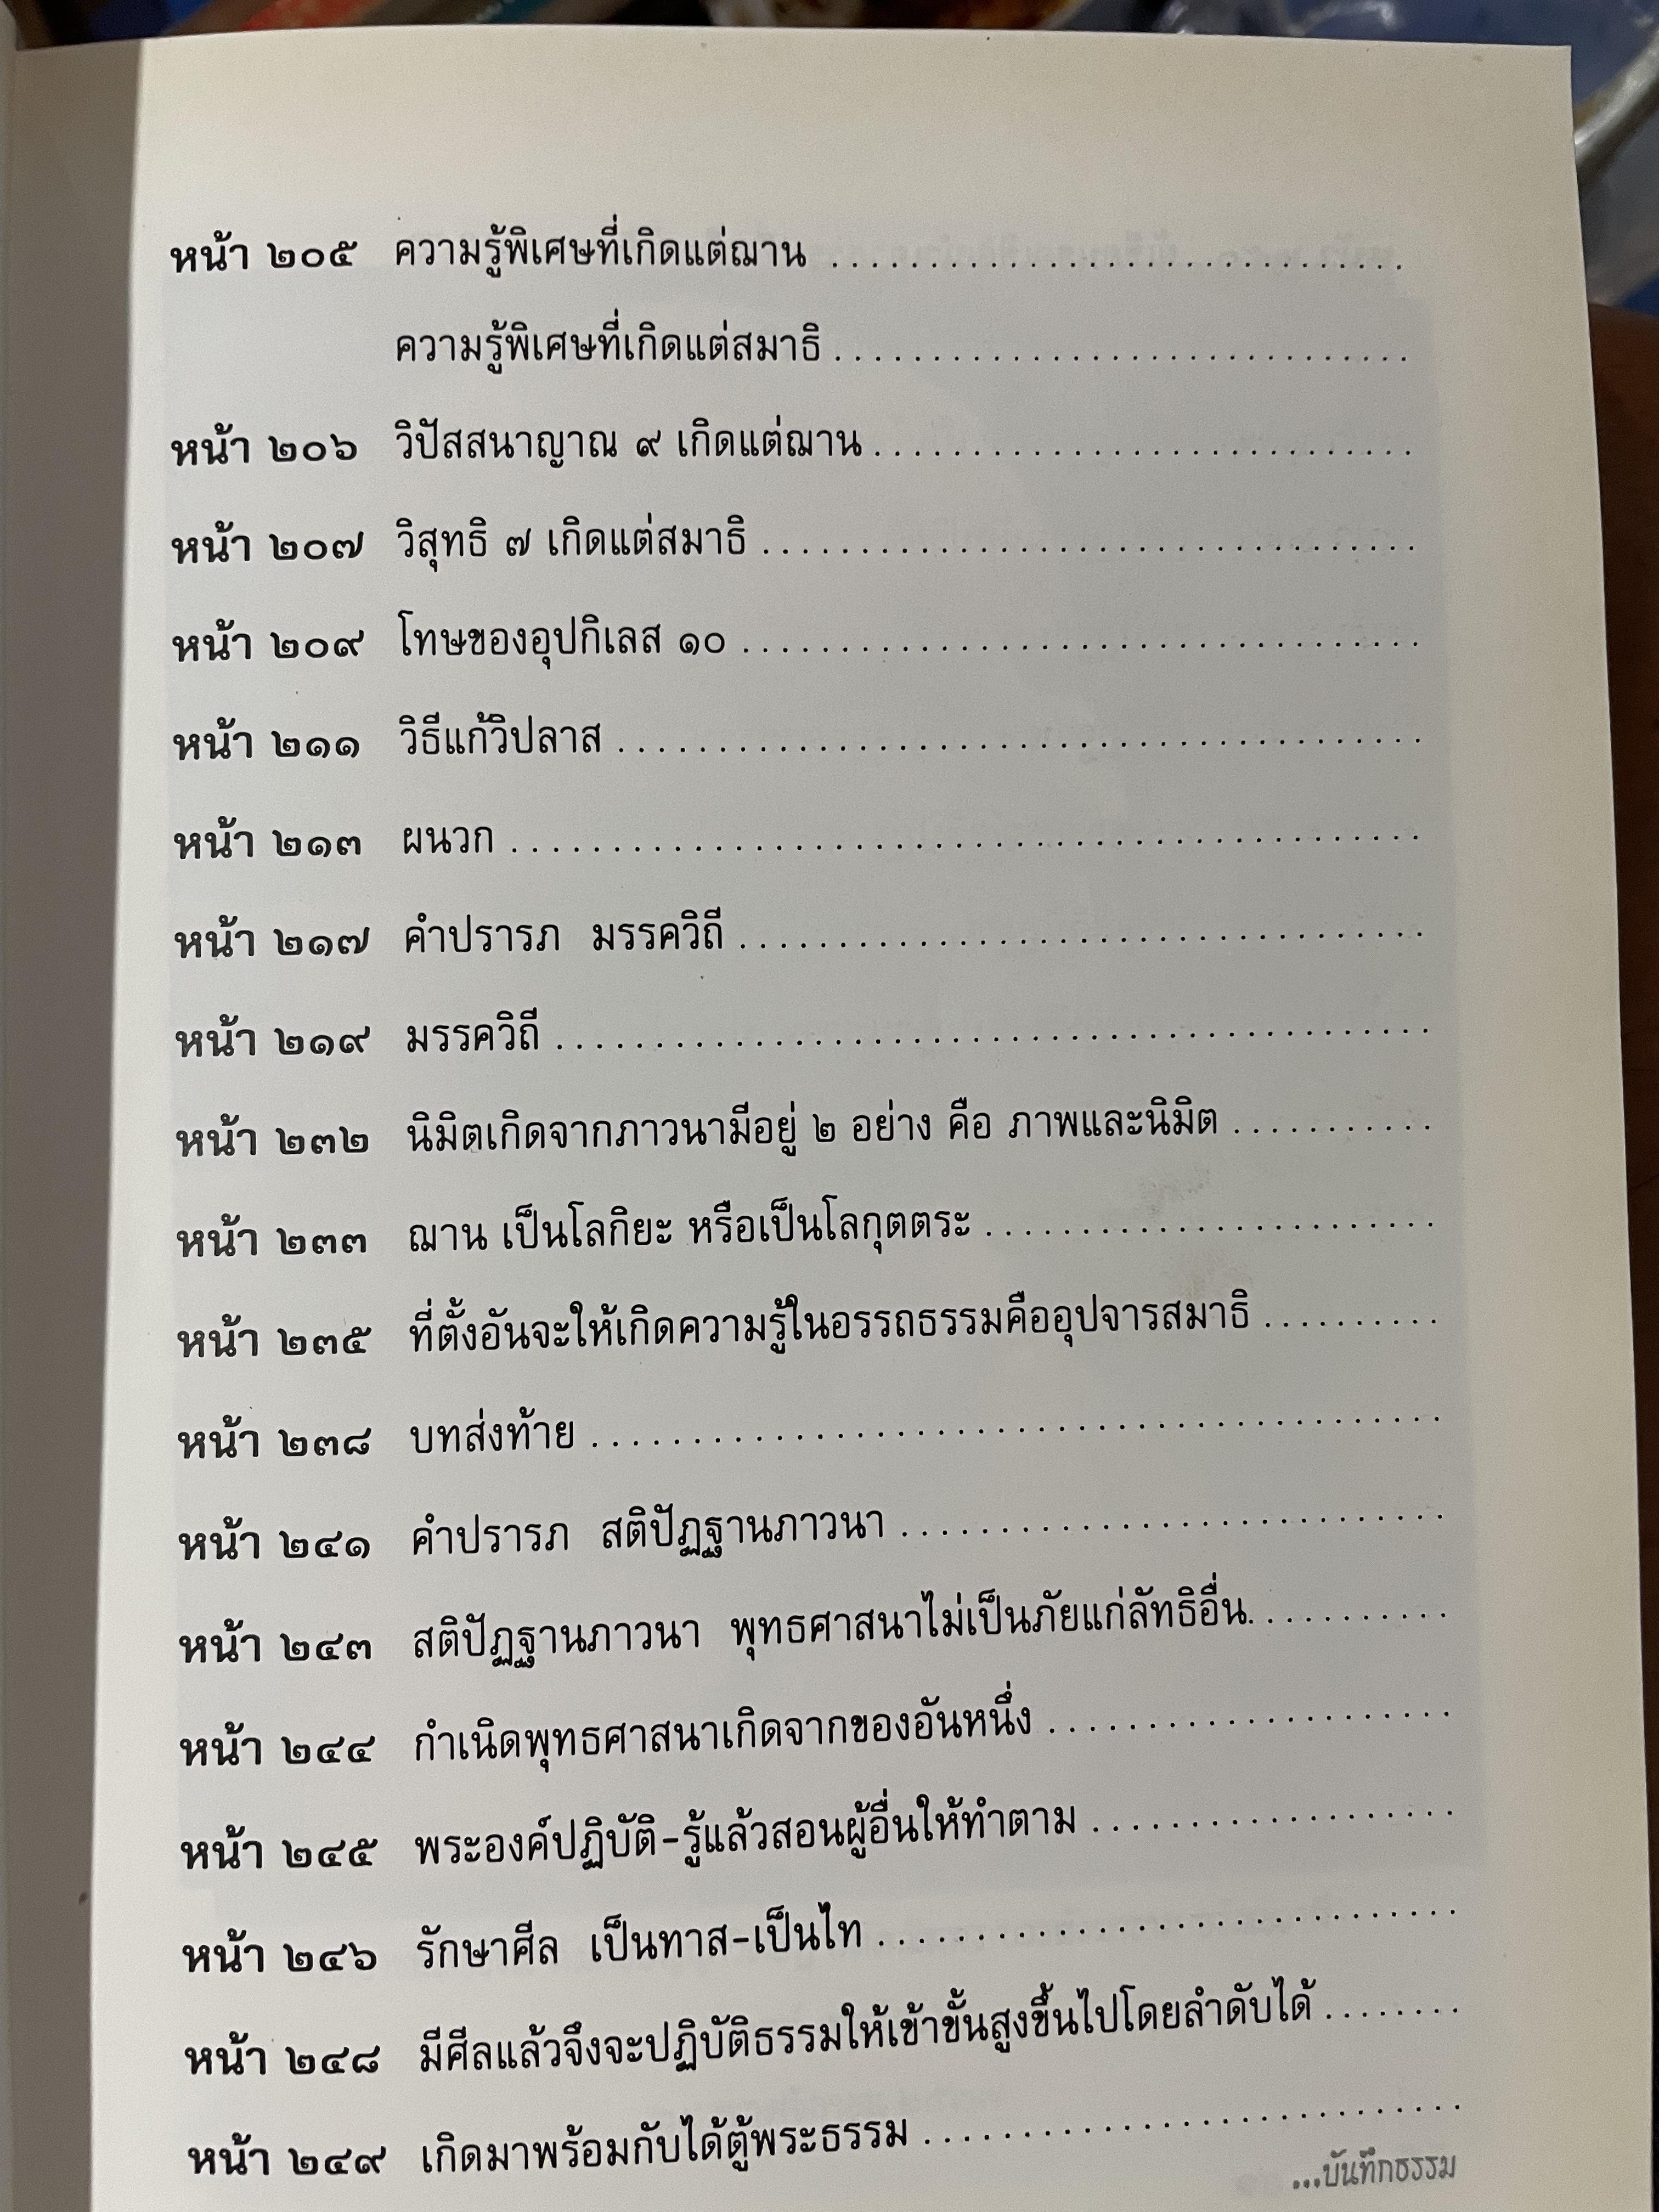 หน้า ๒๐๕ ความรู้พิเศษที่เกิดแต่ฌาน ..............................
ความรู้พิเศษที่เกิดแต่สมาธิ..............................
หน้า ๒๐๖ วิปัสสนาญาณ ๙ เกิดแต่ฌาน............................
หน้า ๒๐๗ วิสุทธิ ๗ เกิดแต่สมาธิ..................................
หน้า ๒๐๙ โทษของอุปกิเลส ๑๐...................................
หน้า ๒๑๑ วิธีแก้วิปลาส.........................................
หน้า ๒๑๓ ผนวก..............................................
หน้า ๒๑๗ คำปรารภ มรรควิถี...................................
หน้า ๒๑๙ มรรควิถี............................................
หน้า ๒๓๒ นิมิตเกิดจากภาวนามีอยู่ ๒ อย่าง คือ ภาพและนิมิต...........
หน้า ๒๓๓ ฌาน เป็นโลกิยะ หรือเป็นโลกุตตระ.......................
หน้า ๒๓๕ ที่ตั้งอันจะให้เกิดความรู้ในอรรถธรรมคืออุปจารสมาธิ..........
หน้า ๒๓๘ บทส่งท้าย...........................................
หน้า ๒๔๑ คำปรารภ สติปัฏฐานภาวนา............................
หน้า ๒๔๓ สติปัฏฐานภาวนา พุทธศาสนาไม่เป็นภัยแก่ลัทธิอื่น...........
หน้า ๒๔๔ กำเนิดพุทธศาสนาเกิดจากของอันหนึ่ง.....................
หน้า ๒๔๕ พระองค์ปฏิบัติ-รู้แล้วสอนผู้อื่นให้ทำตาม...................
หน้า ๒๔๖ รักษาศีล เป็นทาส-เป็นไท..............................
หน้า ๒๔๘ มีศีลแล้วจึงจะปฏิบัติธรรมให้เข้าขั้นสูงขึ้นไปโดยลำดับได้........
หน้า ๒๔๙ เกิดมาพร้อมกับได้ตู้พระธรรม............................
...บันทึกธรรม